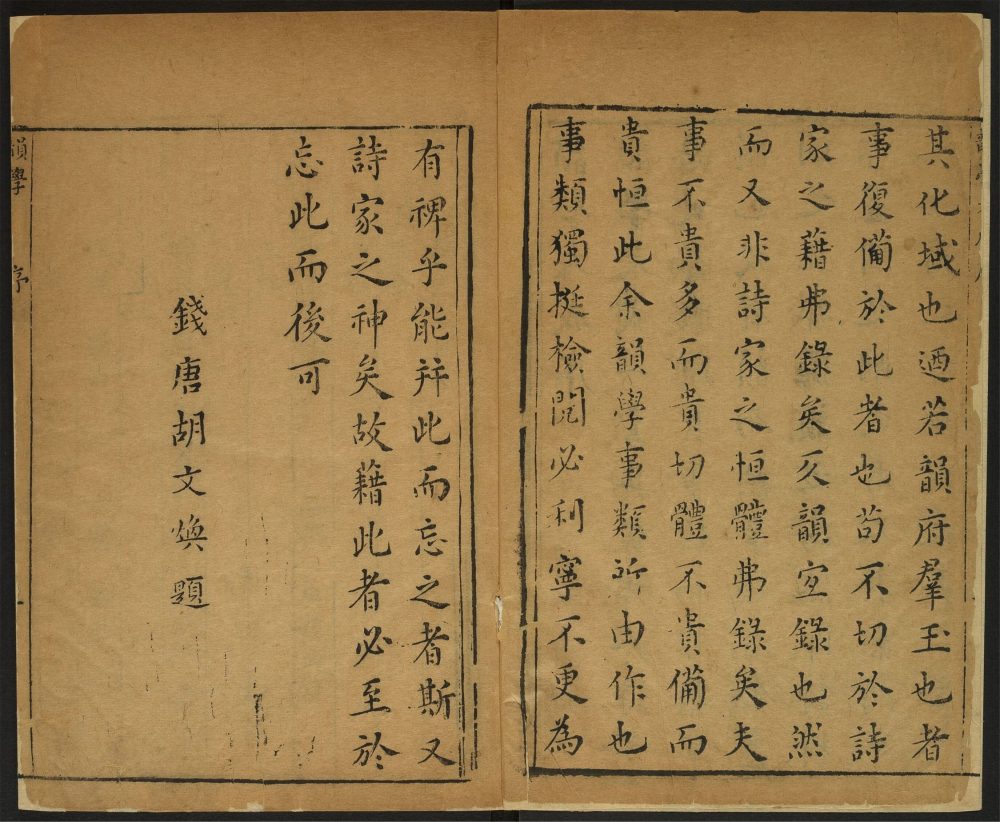 其化域也迺若韻府羣玉也者
事復備於此者也苟不切於詩
家之藉弗錄矣仄韻宜錄也然
而又非詩家之恒體弗錄矣夫
事不貴多而貴切體不貴備而
貴恒此余韻學事類所由作也
事類獨挺檢閱必利寧不更為
有裨乎能并此而忘之者斯又
詩家之神矣故藉此者必至於
忘此而後可
錢唐胡文煥題
韻學 序